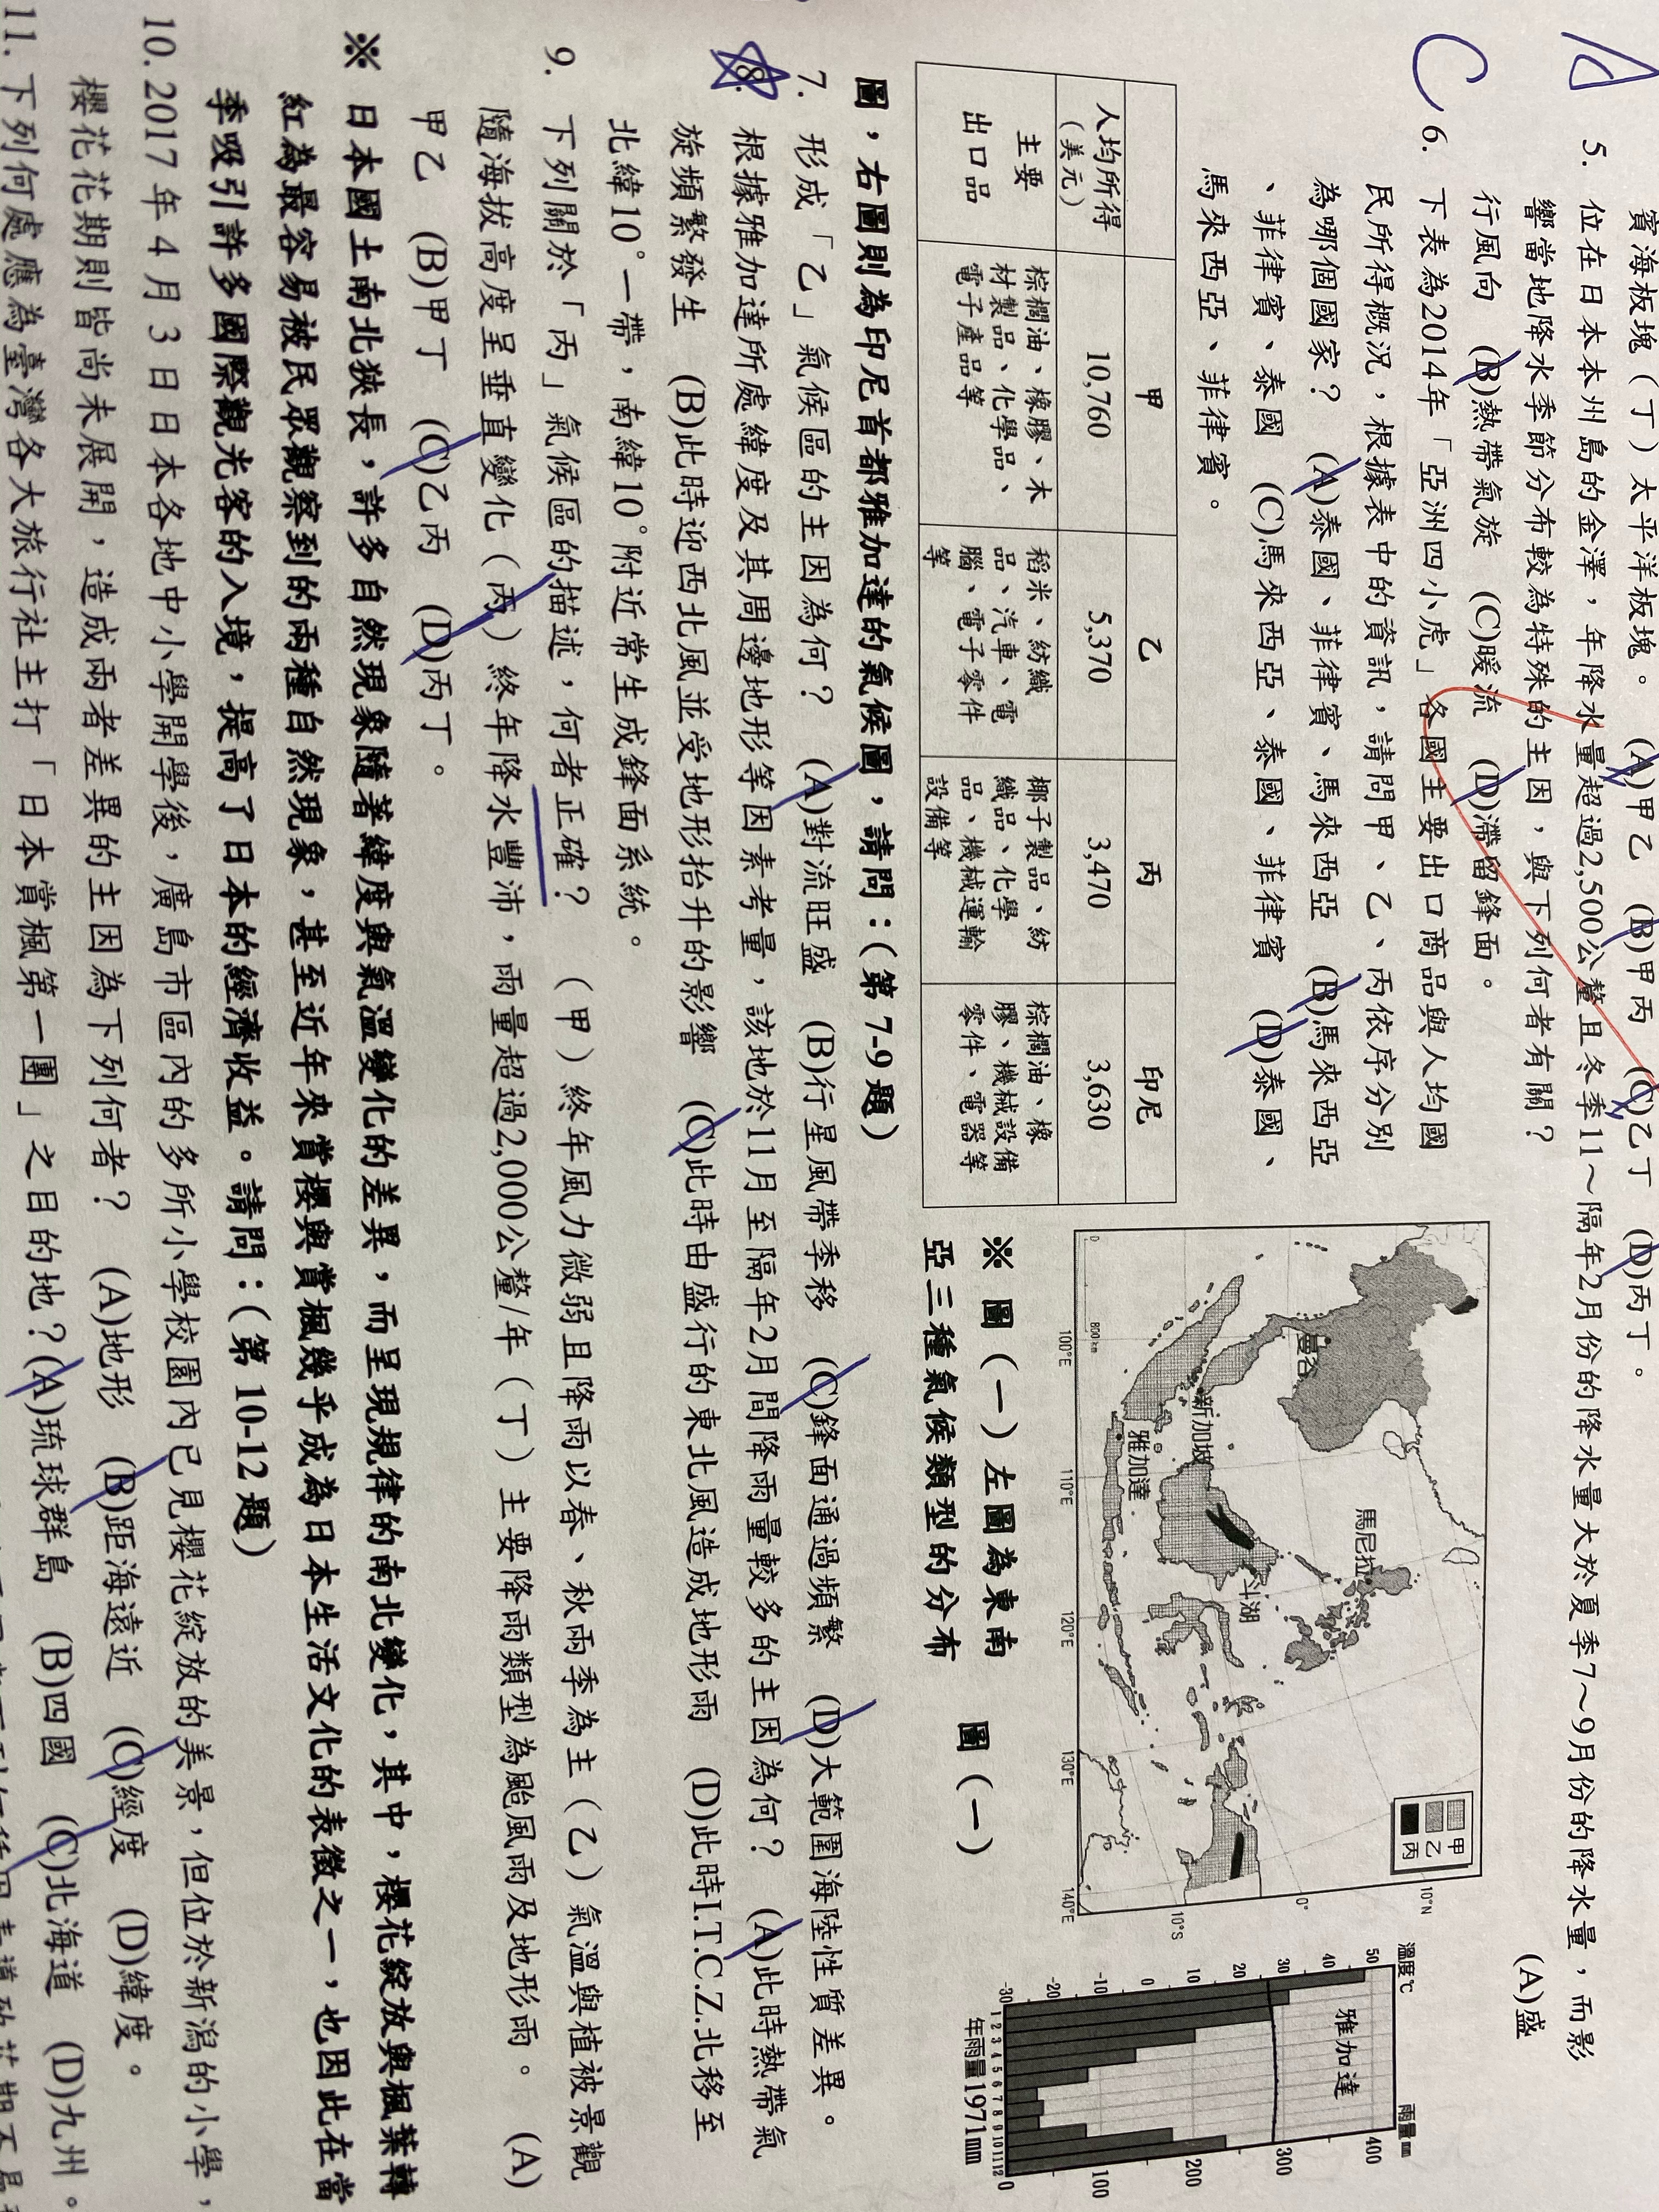 賓海板塊（丁）太平洋板塊。　(A)甲乙　(B)甲丙　(C)乙丁　(D)丙丁。
A
5. 位在日本本州島的金澤，年降水量超過2,500公釐且冬季11～隔年2月份的降水量大於夏季7～9月份的降水量，而影
響當地降水季節分布較為特殊的主因，與下列何者有關？　(A)盛
行風向　(B)熱帶氣旋　(C)暖流　(D)滯留鋒面。
C
6. 下表為2014年「亞洲四小虎」各國主要出口商品與人均國
民所得概況，根據表中的資訊，請問甲、乙、丙依序分別
為哪個國家？　(A)泰國、菲律賓、馬來西亞　(B)馬來西亞
、菲律賓、泰國　(C)馬來西亞、泰國、菲律賓　(D)泰國、
馬來西亞、菲律賓。
甲　乙　丙　印尼
人均所得（美元）　10,760　5,370　3,470　3,630
主要出口品
棕櫚油、橡膠、木材製品、化學品、電子產品等
稻米、紡織品、汽車、電腦、電子零件等
椰子製品、紡織品、化學品、機械運輸設備等
棕櫚油、橡膠、機械設備零件、電器等
曼谷
新加坡
雅加達
馬尼拉
斗湖
甲
乙
丙
0　800km
100°E　110°E　120°E　130°E　140°E
10°N
0°
10°S
溫度℃　雨量mm
雅加達
50　40　30　20　10　0　-10　-20　-30
400　300　200　100　0
1 2 3 4 5 6 7 8 9 10 11 12
年雨量1971mm
※ 圖（一）左圖為東南
亞三種氣候類型的分布
圖（一）
圖，右圖則為印尼首都雅加達的氣候圖，請問：（第 7-9 題）
7. 形成「乙」氣候區的主因為何？　(A)對流旺盛　(B)行星風帶季移　(C)鋒面通過頻繁　(D)大範圍海陸性質差異。
8. 根據雅加達所處緯度及其周邊地形等因素考量，該地於11月至隔年2月間降雨量較多的主因為何？　(A)此時熱帶氣
旋頻繁發生　(B)此時迎西北風並受地形抬升的影響　(C)此時由盛行的東北風造成地形雨　(D)此時I.T.C.Z.北移至
北緯10°一帶，南緯10°附近常生成鋒面系統。
9. 下列關於「丙」氣候區的描述，何者正確？　（甲）終年風力微弱且降雨以春、秋兩季為主（乙）氣溫與植被景觀
隨海拔高度呈垂直變化（丙）終年降水豐沛，雨量超過2,000公釐/年（丁）主要降雨類型為颱風雨及地形雨。　(A)
甲乙　(B)甲丁　(C)乙丙　(D)丙丁。
※ 日本國土南北狹長，許多自然現象隨著緯度與氣溫變化的差異，而呈現規律的南北變化，其中，櫻花綻放與楓葉轉
紅為最容易被民眾觀察到的兩種自然現象，甚至近年來賞櫻與賞楓幾乎成為日本生活文化的表徵之一，也因此在當
季吸引許多國際觀光客的入境，提高了日本的經濟收益。請問：（第 10-12 題）
10. 2017 年 4 月 3 日日本各地中小學開學後，廣島市區內的多所小學校園內已見櫻花綻放的美景，但位於新潟的小學，
櫻花花期則皆尚未展開，造成兩者差異的主因為下列何者？　(A)地形　(B)距海遠近　(C)經度　(D)緯度。
11. 下列何處應為臺灣各大旅行社主打「日本賞楓第一團」之目的地？(A)琉球群島　(B)四國　(C)北海道　(D)九州。